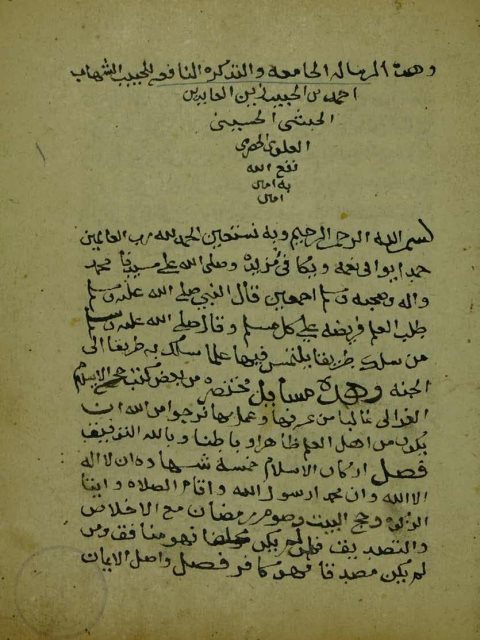 وهذه الرساله الجامعه والتذكره النافعه للحبيب الشهاب
احمد بن الحبيب زين العابدين
الحبشي الحسيني
العلوي الحضرمي
نفع الله
به امين
امين
بسم الله الرحمن الرحيم وبه نستعين الحمد لله رب العالمين
حمدا يوافي نعمه ويكافي مزيده وصلى الله على سيدنا محمد
واله وصحبه وسلم اجمعين قال النبي صلى الله عليه وسلم
طلب العلم فريضه على كل مسلم وقال صلى الله عليه وسلم
من سلك طريقا يلتمس فيها علما سلك به طريقا الى
الجنه وهذه مسايل مختصره من بعض كتب حجة الاسلام
الغزالي غالبا من عرفها وعمل بها نرجوا من الله ان
يكون من اهل العلم ظاهرا وباطنا وبالله التوفيق
فصل اركان الاسلام خمسة شهادة ان لا اله
الا الله وان محمد ارسول الله واقام الصلاه وايتا
الزكوه وحج البيت وصوم رمضان مع الاخلاص
والتصديق فمن لم يكن مخلصا فهو منافق ومن
لم يكن مصدقا فهو كافر فصل واصل الايمان